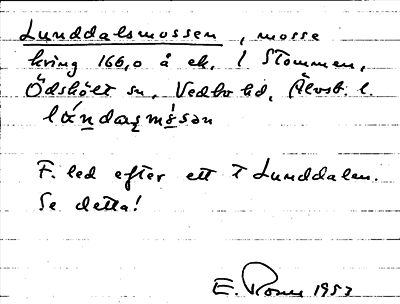 Lunddalsmossen, mosse
kring 166,0 å ek. l Stommen,
Ödskölt sn, Vedbo hd, Älvsb. l.
lándasmòsən
F. led efter ett † Lunddalen.
Se detta!
E. 1953